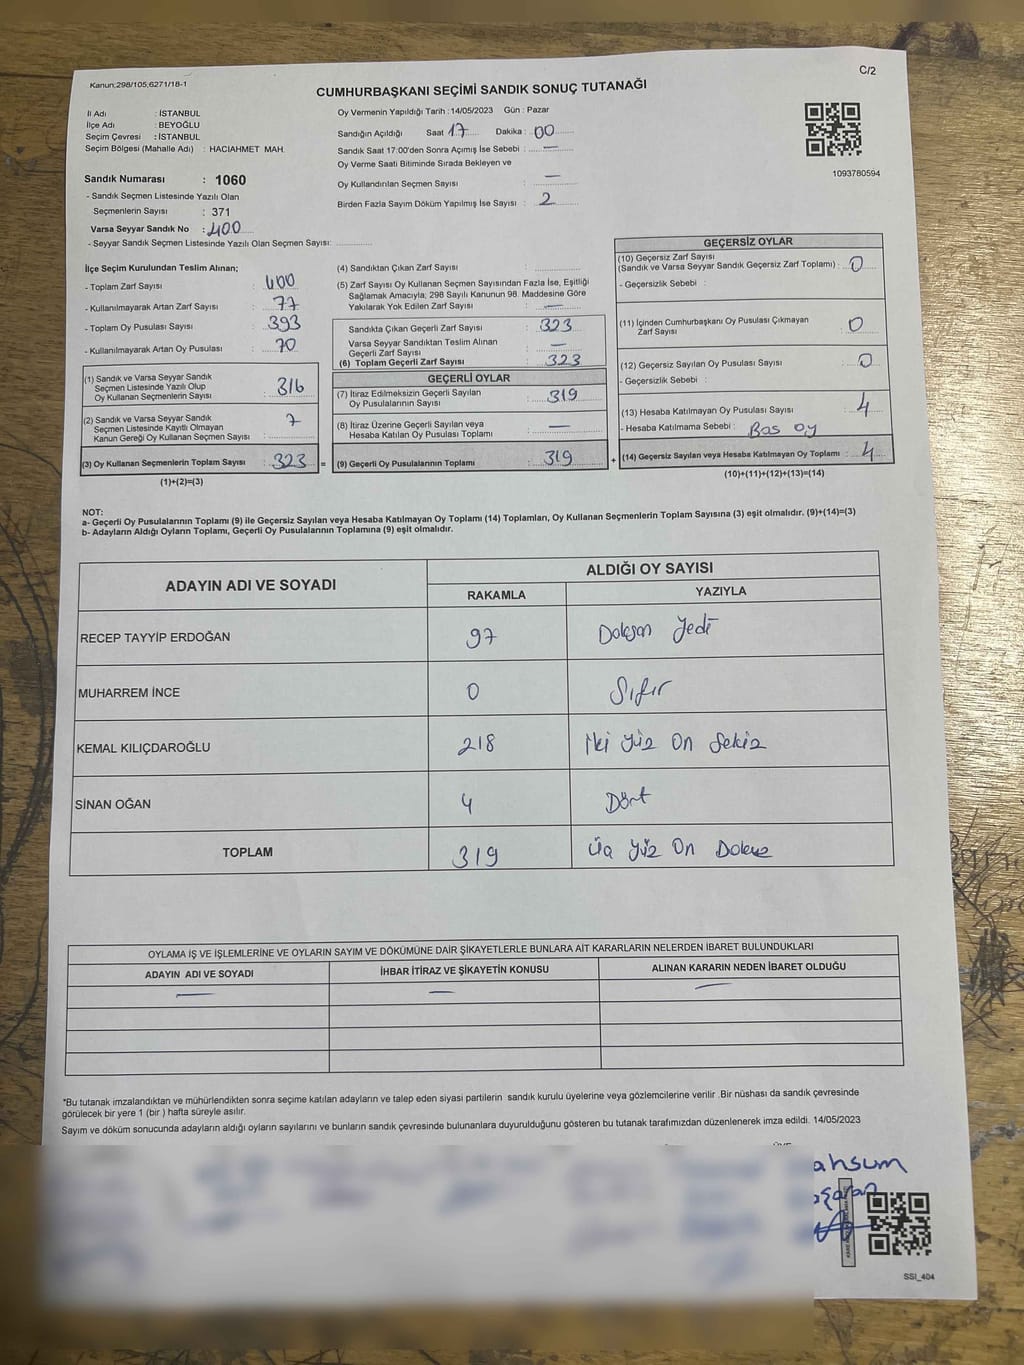 Kanun:298/105;6271/18-1
C/2
CUMHURBAŞKANI SEÇİMİ SANDIK SONUÇ TUTANAĞI
İl Adı : İSTANBUL
İlçe Adı : BEYOĞLU
Seçim Çevresi : İSTANBUL
Seçim Bölgesi (Mahalle Adı) : HACIAHMET MAH.
Sandık Numarası : 1060
- Sandık Seçmen Listesinde Yazılı Olan
Seçmenlerin Sayısı : 371
Varsa Seyyar Sandık No : 400
- Seyyar Sandık Seçmen Listesinde Yazılı Olan Seçmen Sayısı:
Oy Vermenin Yapıldığı Tarih :14/05/2023 Gün : Pazar
Sandığın Açıldığı Saat 17 Dakika : 00
Sandık Saat 17:00'den Sonra Açımış İse Sebebi : —
Oy Verme Saati Bitiminde Sırada Bekleyen ve
Oy Kullandırılan Seçmen Sayısı : —
Birden Fazla Sayım Döküm Yapılmış İse Sayısı : 2
1093780594
İlçe Seçim Kurulundan Teslim Alınan;
- Toplam Zarf Sayısı : 400
- Kullanılmayarak Artan Zarf Sayısı : 77
- Toplam Oy Pusulası Sayısı : 393
- Kullanılmayarak Artan Oy Pusulası : 70
(1) Sandık ve Varsa Seyyar Sandık
Seçmen Listesinde Yazılı Olup
Oy Kullanan Seçmenlerin Sayısı : 316
(2) Sandık ve Varsa Seyyar Sandık
Seçmen Listesinde Kayıtlı Olmayan
Kanun Gereği Oy Kullanan Seçmen Sayısı : 7
(3) Oy Kullanan Seçmenlerin Toplam Sayısı : 323 =
(1)+(2)=(3)
(4) Sandıktan Çıkan Zarf Sayısı :
(5) Zarf Sayısı Oy Kullanan Seçmen Sayısından Fazla İse, Eşitliği
Sağlamak Amacıyla; 298 Sayılı Kanunun 98. Maddesine Göre
Yakılarak Yok Edilen Zarf Sayısı : —
Sandıkta Çıkan Geçerli Zarf Sayısı : 323
Varsa Seyyar Sandıktan Teslim Alınan
Geçerli Zarf Sayısı : —
(6) Toplam Geçerli Zarf Sayısı : 323
GEÇERLİ OYLAR
(7) İtiraz Edilmeksizin Geçerli Sayılan
Oy Pusulalarının Sayısı : 319
(8) İtiraz Üzerine Geçerli Sayılan veya
Hesaba Katılan Oy Pusulası Toplamı : —
(9) Geçerli Oy Pusulalarının Toplamı : 319 +
GEÇERSİZ OYLAR
(10) Geçersiz Zarf Sayısı
(Sandık ve Varsa Seyyar Sandık Geçersiz Zarf Toplamı) : 0
- Geçersizlik Sebebi :
(11) İçinden Cumhurbaşkanı Oy Pusulası Çıkmayan
Zarf Sayısı : 0
(12) Geçersiz Sayılan Oy Pusulası Sayısı : 0
- Geçersizlik Sebebi :
(13) Hesaba Katılmayan Oy Pusulası Sayısı : 4
- Hesaba Katılmama Sebebi : Bos oy
(14) Geçersiz Sayılan veya Hesaba Katılmayan Oy Toplamı : 4
(10)+(11)+(12)+(13)=(14)
NOT:
a- Geçerli Oy Pusulalarının Toplamı (9) ile Geçersiz Sayılan veya Hesaba Katılmayan Oy Toplamı (14) Toplamları, Oy Kullanan Seçmenlerin Toplam Sayısına (3) eşit olmalıdır. (9)+(14)=(3)
b- Adayların Aldığı Oyların Toplamı, Geçerli Oy Pusulalarının Toplamına (9) eşit olmalıdır.
ADAYIN ADI VE SOYADI
ALDIĞI OY SAYISI
RAKAMLA YAZIYLA
RECEP TAYYİP ERDOĞAN 97 Doksan Yedi
MUHARREM İNCE 0 Sıfır
KEMAL KILIÇDAROĞLU 218 İki Yüz On Sekiz
SİNAN OĞAN 4 Dört
TOPLAM 319 Üç Yüz On Dokuz
OYLAMA İŞ VE İŞLEMLERİNE VE OYLARIN SAYIM VE DÖKÜMÜNE DAİR ŞİKAYETLERLE BUNLARA AİT KARARLARIN NELERDEN İBARET BULUNDUKLARI
ADAYIN ADI VE SOYADI İHBAR İTİRAZ VE ŞİKAYETİN KONUSU ALINAN KARARIN NEDEN İBARET OLDUĞU
— — —
*Bu tutanak imzalandıktan ve mühürlendikten sonra seçime katılan adayların ve talep eden siyasi partilerin sandık kurulu üyelerine veya gözlemcilerine verilir .Bir nüshası da sandık çevresinde
görülecek bir yere 1 (bir ) hafta süreyle asılır.
Sayım ve döküm sonucunda adayların aldığı oyların sayılarını ve bunların sandık çevresinde bulunanlara duyurulduğunu gösteren bu tutanak tarafımızdan düzenlenerek imza edildi. 14/05/2023
ahsum
SSI_404